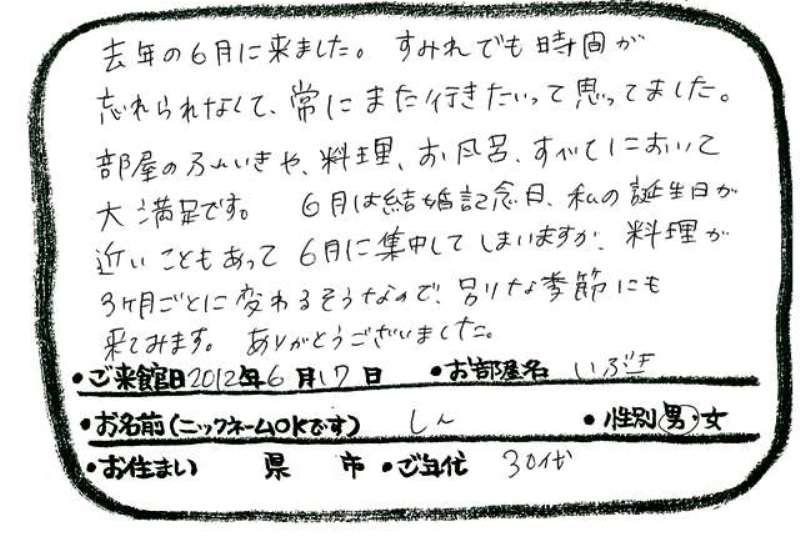 去年の6月に来ました。すみれでも時間が
忘れられなくて、常にまた行きたいって思ってました。
部屋のふんいきや、料理、お風呂、すべてにおいて
大満足です。 6月は結婚記念日、私の誕生日が
近いこともあって6月に集中してしまいますが、料理が
3ヶ月ごとに変わるそうなので、別な季節にも
来てみます。ありがとうございました。
•ご来館日2012年6月17日 •お部屋名 いぶき
•お名前(ニックネームOKです) しん •性別 男・女
•お住まい 県 市 •ご年代 30代